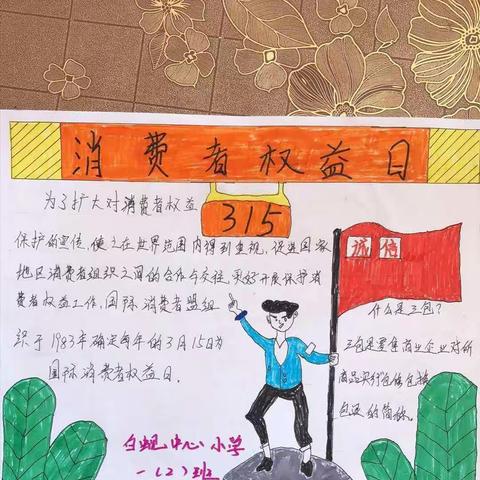 消费者权益日
315
为了扩大对消费者权益
保护的宣传，使之在世界范围内得到重视，促进国家
地区消费者组织之间的合作与交往，更好开展保护消
费者权益工作，国际消费者盟组
织于1983年确定每年的3月15日为
国际消费者权益日。
诚信
什么是三包？
三包是零售商业企业对所
商品实行包修包换
包退的简称。
中心小学
一（2）班